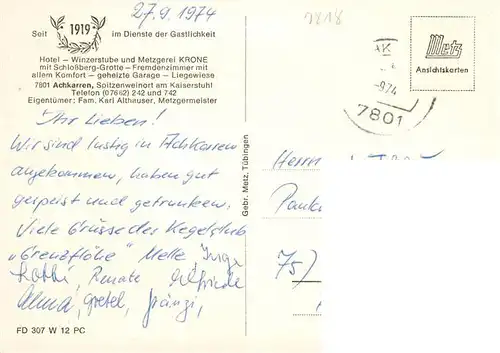 27.9.1974
7818
Seit 1919 im Dienste der Gastlichkeit
Hotel – Winzerstube und Metzgerei KRONE
mit Schloßberg-Grotte – Fremdenzimmer mit
allem Komfort – geheizte Garage – Liegewiese
7801 Achkarren, Spitzenweinort am Kaiserstuhl
Telefon (07662) 242 und 742
Eigentümer: Fam. Karl Althauser, Metzgermeister
Metz
Ansichtskarten
7801
Ihr Lieben!
Wir sind lustig in Achkarren
angekommen, haben gut
gespeist und getrunken.
Viele Grüsse des Kegelclub
"Grenzflöhe" Melle, Inge
Renate Elfriede
Alma, Gretel, Fränzi,
Herrn
75
Gebr. Metz, Tübingen
FD 307 W 12 PC